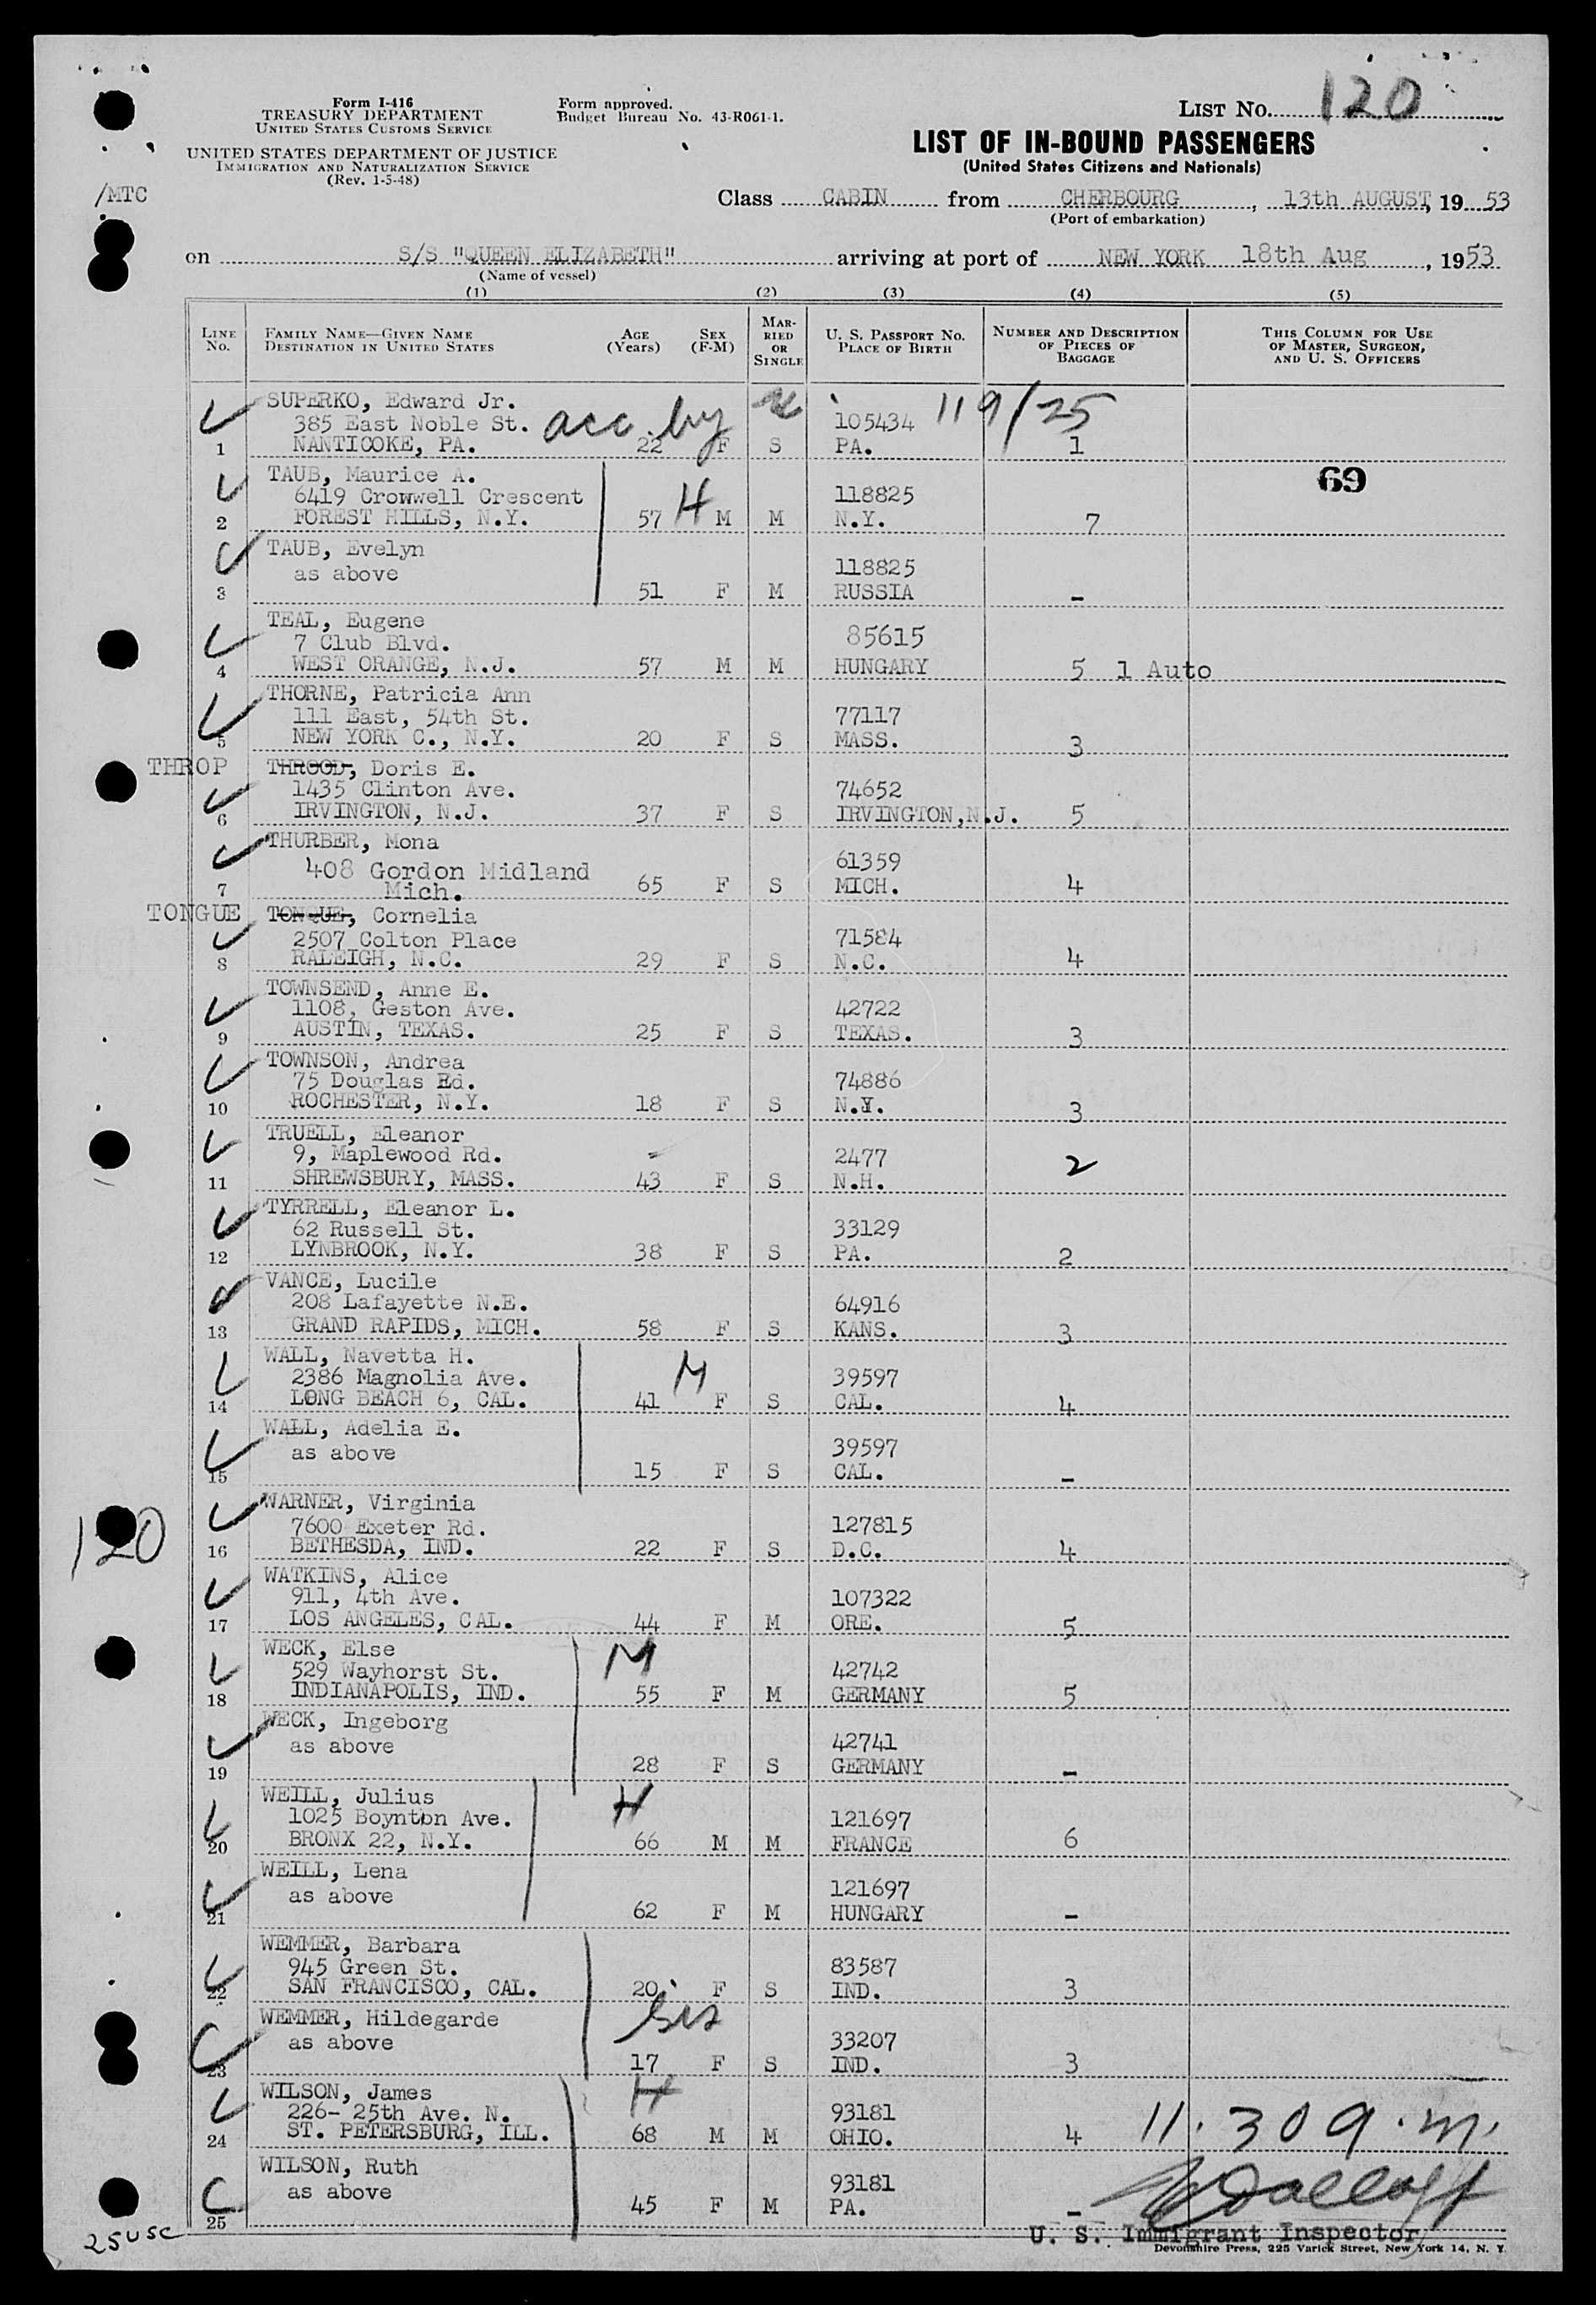 Form I-416
TREASURY DEPARTMENT
UNITED STATES CUSTOMS SERVICE
UNITED STATES DEPARTMENT OF JUSTICE
IMMIGRATION AND NATURALIZATION SERVICE
(Rev. 1-5-48)
Form approved.
Budget Bureau No. 43-R061-1.
LIST No. 120
LIST OF IN-BOUND PASSENGERS
(United States Citizens and Nationals)
/MTC
Class CABIN from CHERBOURG, 13th AUGUST, 19 53
(Port of embarkation)
on S/S "QUEEN ELIZABETH" arriving at port of NEW YORK 18th Aug, 1953
(Name of vessel)
(1) (2) (3) (4) (5)
LINE No. FAMILY NAME—GIVEN NAME DESTINATION IN UNITED STATES AGE (Years) SEX (F-M) MARRIED OR SINGLE U. S. PASSPORT No. PLACE OF BIRTH NUMBER AND DESCRIPTION OF PIECES OF BAGGAGE THIS COLUMN FOR USE OF MASTER, SURGEON, AND U. S. OFFICERS
SUPERKO, Edward Jr.
385 East Noble St. acc. by 105434 119/25
1 NANTICOKE, PA. 22 F S PA. 1
TAUB, Maurice A. 69
6419 Crowwell Crescent H 118825
2 FOREST HILLS, N.Y. 57 M M N.Y. 7
TAUB, Evelyn
as above 118825
3 51 F M RUSSIA -
TEAL, Eugene
7 Club Blvd. 85615
4 WEST ORANGE, N.J. 57 M M HUNGARY 5 1 Auto
THORNE, Patricia Ann
111 East, 54th St. 77117
5 NEW YORK C., N.Y. 20 F S MASS. 3
THROP THROOD, Doris E.
1435 Clinton Ave. 74652
6 IRVINGTON, N.J. 37 F S IRVINGTON,N.J. 5
THURBER, Mona
408 Gordon Midland 61359
7 Mich. 65 F S MICH. 4
TONGUE TONQUE, Cornelia
2507 Colton Place 71584
8 RALEIGH, N.C. 29 F S N.C. 4
TOWNSEND, Anne E.
1108, Geston Ave. 42722
9 AUSTIN, TEXAS. 25 F S TEXAS. 3
TOWNSON, Andrea
75 Douglas Rd. 74886
10 ROCHESTER, N.Y. 18 F S N.Y. 3
TRUELL, Eleanor
9, Maplewood Rd. 2477
11 SHREWSBURY, MASS. 43 F S N.H. 2
TYRRELL, Eleanor L.
62 Russell St. 33129
12 LYNBROOK, N.Y. 38 F S PA. 2
VANCE, Lucile
208 Lafayette N.E. 64916
13 GRAND RAPIDS, MICH. 58 F S KANS. 3
WALL, Navetta H.
2386 Magnolia Ave. M 39597
14 LONG BEACH 6, CAL. 41 F S CAL. 4
WALL, Adelia E.
as above 39597
15 15 F S CAL. -
WARNER, Virginia
120 7600 Exeter Rd. 127815
16 BETHESDA, IND. 22 F S D.C. 4
WATKINS, Alice
911, 4th Ave. 107322
17 LOS ANGELES, CAL. 44 F M ORE. 5
WECK, Else M
529 Wayhorst St. 42742
18 INDIANAPOLIS, IND. 55 F M GERMANY 5
WECK, Ingeborg
as above 42741
19 28 F S GERMANY -
WEILL, Julius H
1025 Boynton Ave. 121697
20 BRONX 22, N.Y. 66 M M FRANCE 6
WEILL, Lena
as above 121697
21 62 F M HUNGARY -
WEMMER, Barbara
945 Green St. 83587
22 SAN FRANCISCO, CAL. 20 F S IND. 3
WEMMER, Hildegarde Sis
as above 33207
23 17 F S IND. 3
WILSON, James H
226- 25th Ave. N. 93181
24 ST. PETERSBURG, ILL. 68 M M OHIO. 4 11.30 a.m.
WILSON, Ruth
as above 93181
25 45 F M PA. -
25 USC
U. S. Immigrant Inspector
Devonshire Press, 225 Varick Street, New York 14, N. Y.